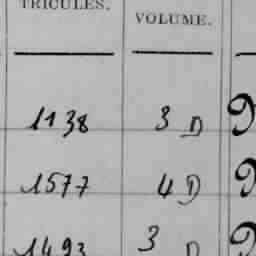 TRICULES. VOLUME.
1138 3 D
1577 4 D
1493 3 D